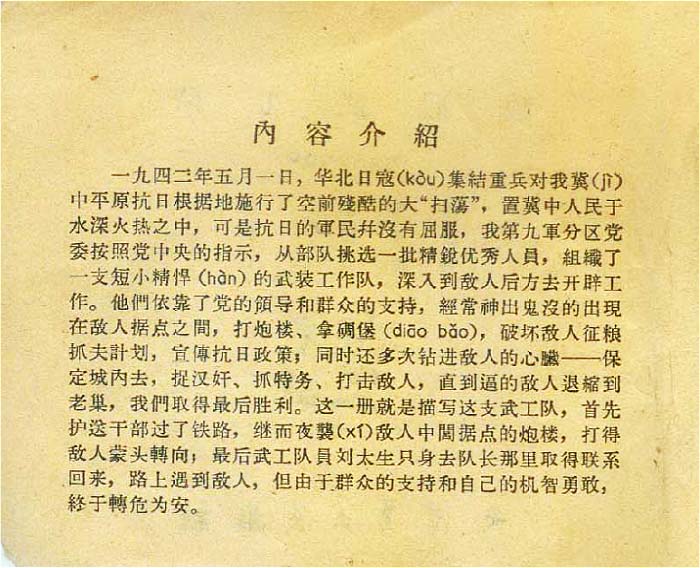 內容介紹
一九四二年五月一日，华北日寇(kòu)集結重兵对我冀(jì)
中平原抗日根据地施行了空前殘酷的大“扫蕩”，置冀中人民于
水深火热之中，可是抗日的軍民幷沒有屈服，我第九軍分区党
委按照党中央的指示，从部队挑选一批精銳优秀人員，組織了
一支短小精悍(hàn)的武装工作队，深入到敌人后方去开辟工
作。他們依靠了党的領导和群众的支持，經常神出鬼沒的出現
在敌人据点之間，打炮楼、拿碉堡(diāo bǎo)，破坏敌人征粮
抓夫計划，宣傳抗日政策；同时还多次钻进敌人的心臟——保
定城內去，捉汉奸、抓特务、打击敌人，直到逼的敌人退縮到
老巢，我們取得最后胜利。这一册就是描写这支武工队，首先
护送干部过了铁路，继而夜襲(xí)敌人中閭据点的炮楼，打得
敌人蒙头轉向；最后武工队員刘太生只身去队长那里取得联系
回来，路上遇到敌人，但由于群众的支持和自己的机智勇敢，
終于轉危为安。